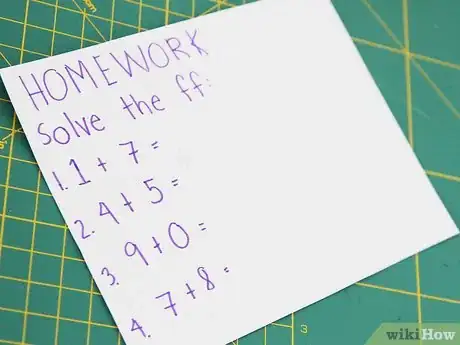 HOMEWORK
Solve the ff:
1. 1 + 7 =
2. 4 + 5 =
3. 9 + 0 =
4. 7 + 8 =
3
wikiHow